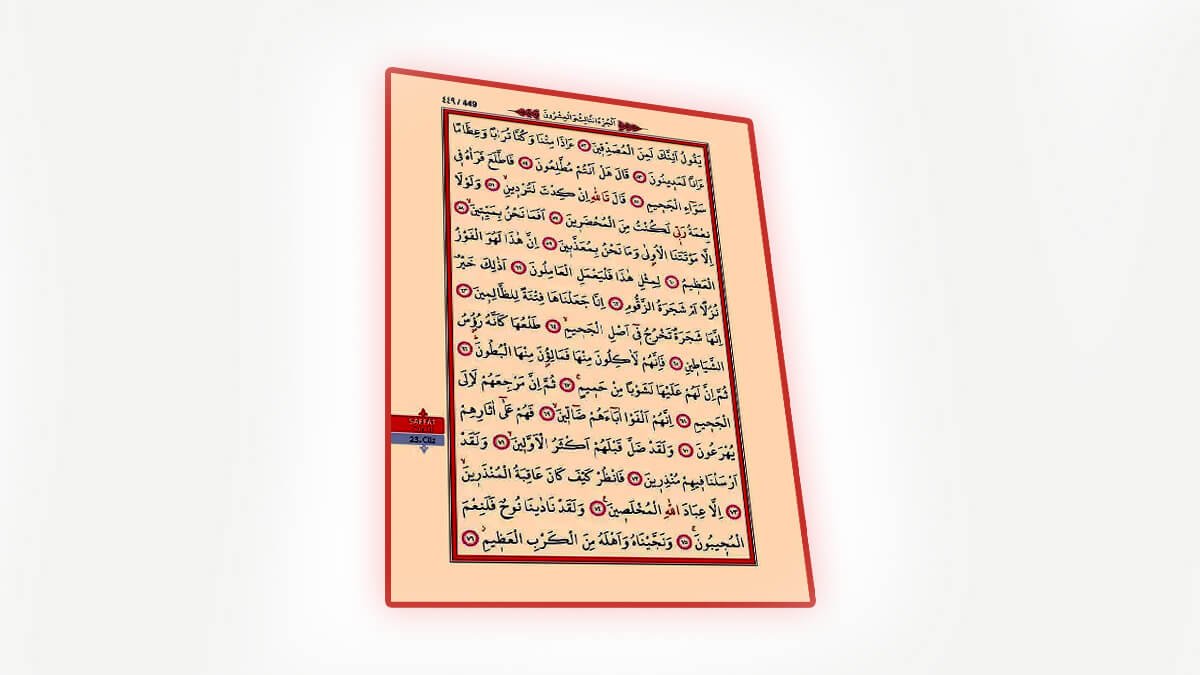 ٤٤٩ / 449
اَلْجُزْءُ الثَّالِثُ وَالْعِشْرُونَ
يَقُولُ اَئِنَّكَ لَمِنَ الْمُصَدِّقِينَ ﴿٥٢﴾ ءَاِذَا مِتْنَا وَكُنَّا تُرَابًا وَعِظَامًا
ءَاِنَّا لَمَدِينُونَ ﴿٥٣﴾ قَالَ هَلْ اَنْتُمْ مُطَّلِعُونَ ﴿٥٤﴾ فَاطَّلَعَ فَرَاٰهُ فِي
سَوَٓاءِ الْجَحِيمِ ﴿٥٥﴾ قَالَ تَاللّٰهِ اِنْ كِدْتَ لَتُرْدِينِۙ ﴿٥٦﴾ وَلَوْلَا
نِعْمَةُ رَبِّي لَكُنْتُ مِنَ الْمُحْضَرِينَ ﴿٥٧﴾ اَفَمَا نَحْنُ بِمَيِّتِينَۙ ﴿٥٨﴾
اِلَّا مَوْتَتَنَا الْاُو۫لٰى وَمَا نَحْنُ بِمُعَذَّبِينَ ﴿٥٩﴾ اِنَّ هٰذَا لَهُوَ الْفَوْزُ
الْعَظِيمُ ﴿٦٠﴾ لِمِثْلِ هٰذَا فَلْيَعْمَلِ الْعَامِلُونَ ﴿٦١﴾ اَذٰلِكَ خَيْرٌ
نُزُلًا اَمْ شَجَرَةُ الزَّقُّومِ ﴿٦٢﴾ اِنَّا جَعَلْنَاهَا فِتْنَةً لِلظَّالِمِينَ ﴿٦٣﴾
اِنَّهَا شَجَرَةٌ تَخْرُجُ فِٓي اَصْلِ الْجَحِيمِۙ ﴿٦٤﴾ طَلْعُهَا كَاَنَّهُ رُؤُ۫سُ
الشَّيَاطِينِ ﴿٦٥﴾ فَاِنَّهُمْ لَاٰكِلُونَ مِنْهَا فَمَالِؤُ۫نَ مِنْهَا الْبُطُونَۜ ﴿٦٦﴾
ثُمَّ اِنَّ لَهُمْ عَلَيْهَا لَشَوْبًا مِنْ حَمِيمٍۚ ﴿٦٧﴾ ثُمَّ اِنَّ مَرْجِعَهُمْ لَاِلَى
الْجَحِيمِ ﴿٦٨﴾ اِنَّهُمْ اَلْفَوْا اٰبَٓاءَهُمْ ضَٓالِّينَۙ ﴿٦٩﴾ فَهُمْ عَلٰٓى اٰثَارِهِمْ
يُهْرَعُونَ ﴿٧٠﴾ وَلَقَدْ ضَلَّ قَبْلَهُمْ اَكْثَرُ الْاَوَّلِينَۙ ﴿٧١﴾ وَلَقَدْ
اَرْسَلْنَا فِيهِمْ مُنْذِرِينَ ﴿٧٢﴾ فَانْظُرْ كَيْفَ كَانَ عَاقِبَةُ الْمُنْذَرِينَۙ
﴿٧٣﴾ اِلَّا عِبَادَ اللّٰهِ الْمُخْلَصِينَ۟ ﴿٧٤﴾ وَلَقَدْ نَادٰينَا نُوحٌ فَلَنِعْمَ
الْمُجِيبُونَۚ ﴿٧٥﴾ وَنَجَّيْنَاهُ وَاَهْلَهُ مِنَ الْكَرْبِ الْعَظِيمِۙ ﴿٧٦﴾
SAFFAT
23. Cüz